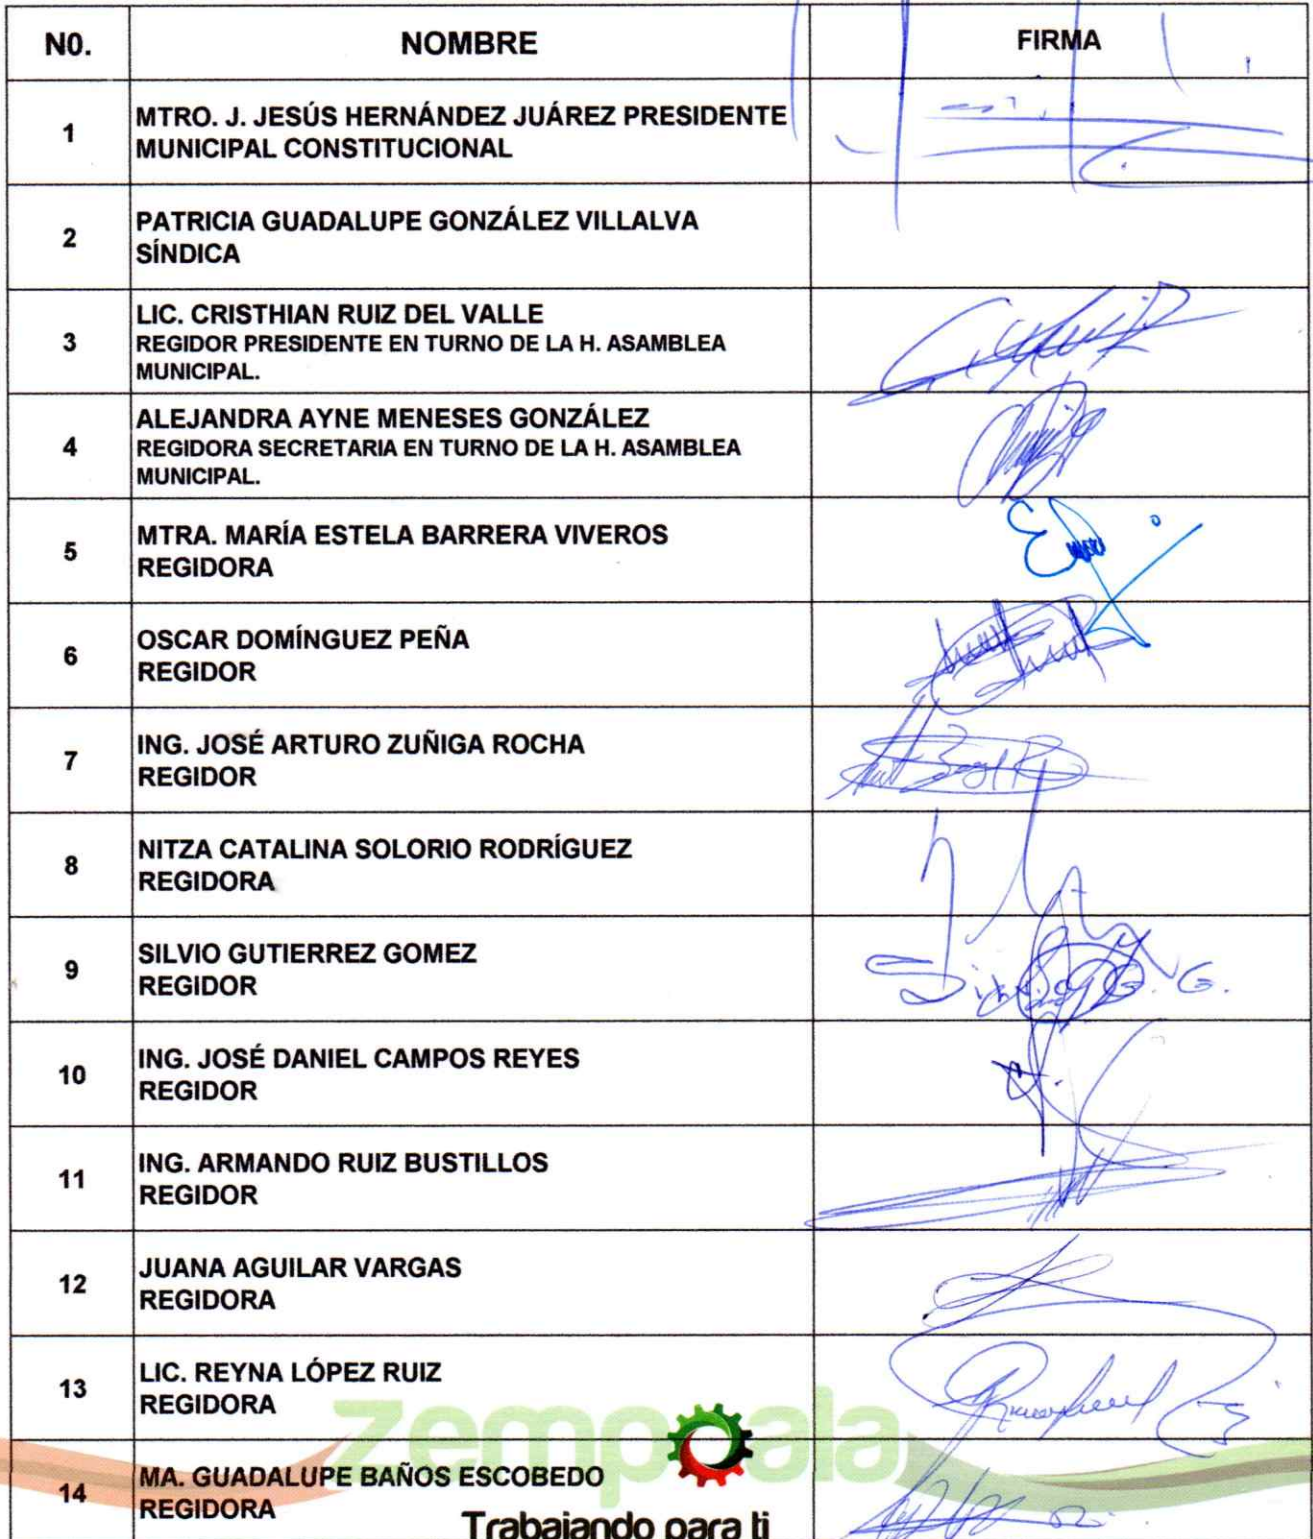 N0. NOMBRE FIRMA
1 MTRO. J. JESÚS HERNÁNDEZ JUÁREZ PRESIDENTE
MUNICIPAL CONSTITUCIONAL
2 PATRICIA GUADALUPE GONZÁLEZ VILLALVA
SÍNDICA
3 LIC. CRISTHIAN RUIZ DEL VALLE
REGIDOR PRESIDENTE EN TURNO DE LA H. ASAMBLEA
MUNICIPAL.
4 ALEJANDRA AYNE MENESES GONZÁLEZ
REGIDORA SECRETARIA EN TURNO DE LA H. ASAMBLEA
MUNICIPAL.
5 MTRA. MARÍA ESTELA BARRERA VIVEROS
REGIDORA
6 OSCAR DOMÍNGUEZ PEÑA
REGIDOR
7 ING. JOSÉ ARTURO ZUÑIGA ROCHA
REGIDOR
8 NITZA CATALINA SOLORIO RODRÍGUEZ
REGIDORA
9 SILVIO GUTIERREZ GOMEZ
REGIDOR
10 ING. JOSÉ DANIEL CAMPOS REYES
REGIDOR
11 ING. ARMANDO RUIZ BUSTILLOS
REGIDOR
12 JUANA AGUILAR VARGAS
REGIDORA
13 LIC. REYNA LÓPEZ RUIZ
REGIDORA
zempoala
14 MA. GUADALUPE BAÑOS ESCOBEDO
REGIDORA
Trabajando para ti